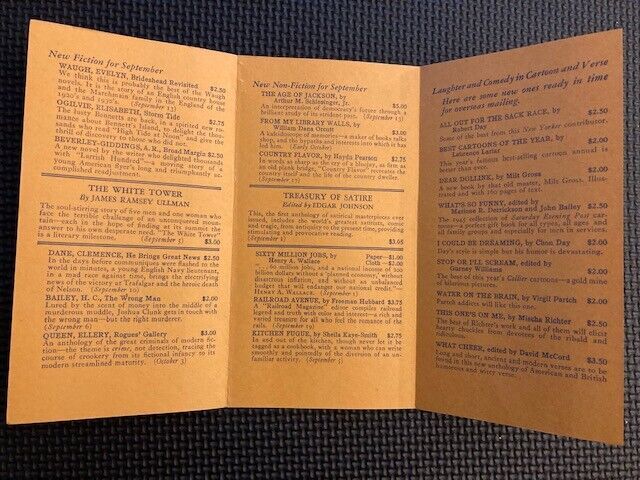 New Fiction for September
WAUGH, EVELYN, Brideshead Revisited $2.50
We think this is probably the best of the Waugh
novels. It is the story of an English country house
and the Marchmain family in the England of the
1920's and 1930's. (September 13)
OGILVIE, ELISABETH, Storm Tide $2.75
The lusty Bennetts are back, in a spirited new romance
about Bennett's Island, to delight the thousands
who read "High Tide at Noon" and give the
thrill of discovery to those who did not.
BEVERLEY-GIDDINGS, A.R., Broad Margin $2.50
A new novel by the writer who delighted thousands
with "Larrish Hundred"—a stirring story of a
young American flyer's long and triumphantly accomplished
readjustment.
THE WHITE TOWER
By JAMES RAMSEY ULLMAN
The soul-stirring story of five men and one woman who
face the terrible challenge of an unconquered mountain—each
in the hope of finding at its summit the
answer to his own desperate need. "The White Tower"
is a literary milestone. (September 5) $3.00
DANE, CLEMENCE, He Brings Great News $2.50
In the days before communiques were flashed to the
world in minutes, a young English Navy lieutenant,
in a mad race against time, brings the electrifying
news of the victory at Trafalgar and the heroic death
of Nelson. (September 10)
BAILEY, H. C., The Wrong Man $2.00
Lured by the scent of money into the middle of a
murderous muddle, Joshua Clunk gets in touch with
the wrong man—but the right murderer.
(September 6)
QUEEN, ELLERY, Rogues' Gallery $3.00
An anthology of the great criminals of modern fiction—the
theme is crime, not detection, tracing the
course of crookery from its fictional infancy to its
modern streamlined maturity. (October 3)
New Non-Fiction for September
THE AGE OF JACKSON, by
Arthur M. Schlesinger, Jr. $5.00
An interpretation of democracy's future through a
brilliant study of its strident past. (September 15)
FROM MY LIBRARY WALLS, by
William Dana Orcutt $3.00
A kaleidoscope of memories—a maker of books talks
shop, and the bypaths and interests into which it has
led him. (Early October)
COUNTRY FLAVOR, by Haydn Pearson $2.75
In words as sharp as the cry of a bluejay, as firm as
an oak plank bridge, "Country Flavor" recreates the
country itself and the life of the country dweller.
(September 17)
TREASURY OF SATIRE
Edited by EDGAR JOHNSON
This, the first anthology of satirical masterpieces ever
issued, includes the world's greatest satirists, comic
and tragic, from antiquity to the present time, providing
stimulating and provocative reading.
(September 1) $3.95
SIXTY MILLION JOBS, by Paper—$1.00
Henry A. Wallace Cloth—$2.00
". . . 60 million jobs, and a national income of 200
billion dollars without a 'planned economy', without
disastrous inflation, and without an unbalanced
budget that will endanger our national credit"—
HENRY A. WALLACE (September)
RAILROAD AVENUE, by Freeman Hubbard $3.75
A "Railroad Magazine" editor compiles railroad
legend and truth into color and interest—rich and
varied treasure for all who feel the romance of the
rails. (September 19)
KITCHEN FUGUE, by Sheila Kaye-Smith $2.75
In and out of the kitchen, though never let it be
tagged as a cookbook, with a woman who can write
smoothly and pointedly of the diversion of an unfamiliar
activity. (September 5)
Laughter and Comedy in Cartoon and Verse
Here are some new ones ready in time
for overseas mailing.
ALL OUT FOR THE SACK RACE, by $2.50
Robert Day
Some of the best from this New Yorker contributor.
BEST CARTOONS OF THE YEAR, by
Lawrence Lariar $2.00
This year's famous best-selling cartoon annual is
better than ever.
DEAR DOLLINK, by Milt Gross $2.00
A new book by that old master, Milt Gross. Illustrated
with 160 pages of text.
WHAT'S SO FUNNY, edited by
Marione R. Derrickson and John Bailey $2.50
The 1945 collection of Saturday Evening Post cartoons—a
perfect gift book for all types, all ages and
all family groups and especially for men in services.
I COULD BE DREAMING, by Chon Day $2.00
Day's style is simple but his humor is devastating.
STOP OR I'LL SCREAM, edited by
Gurney Williams $2.00
The best of this year's Collier cartoons—a gold mine
of hilarious pictures.
WATER ON THE BRAIN, by Virgil Partch $2.00
Partch addicts will like this one.
THIS ONE'S ON ME, by Mischa Richter $2.50
The best of Richter's work and all of them will elicit
hearty chuckles from devotees of the ribald and
earthy.
WHAT CHEER, edited by David McCord $3.50
Long and short, ancient and modern verses are to be
found in this new anthology of American and British
humorous and witty verse.